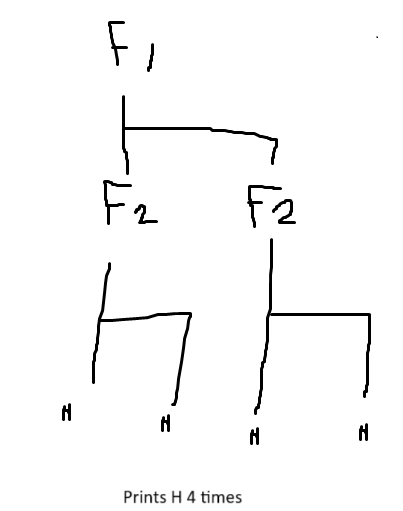 F1
F2 F2
H H H H
Prints H 4 times